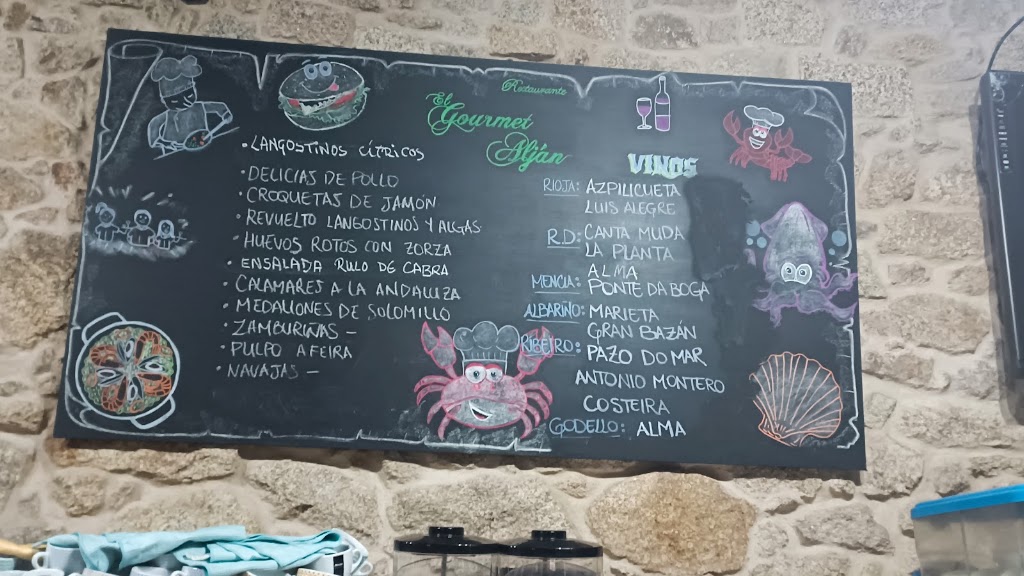 Restaurante
El
Gourmet
Alján
• LANGOSTINOS CÍTRICOS
• DELICIAS DE POLLO
• CROQUETAS DE JAMÓN
• REVUELTO LANGOSTINOS Y ALGAS
• HUEVOS ROTOS CON ZORZA
• ENSALADA RULO DE CABRA
• CALAMARES A LA ANDALUZA
• MEDALLONES DE SOLOMILLO
• ZAMBURIÑAS -
• PULPO A FEIRA
• NAVAJAS -
VINOS
RIOJA: AZPILICUETA
LUIS ALEGRE
R.D: CANTA MUDA
LA PLANTA
ALMA
MENCIA: PONTE DA BOGA
ALBARIÑO: MARIETA
GRAN BAZÁN
RIBEIRO: PAZO DO MAR
ANTONIO MONTERO
COSTEIRA
GODELLO: ALMA